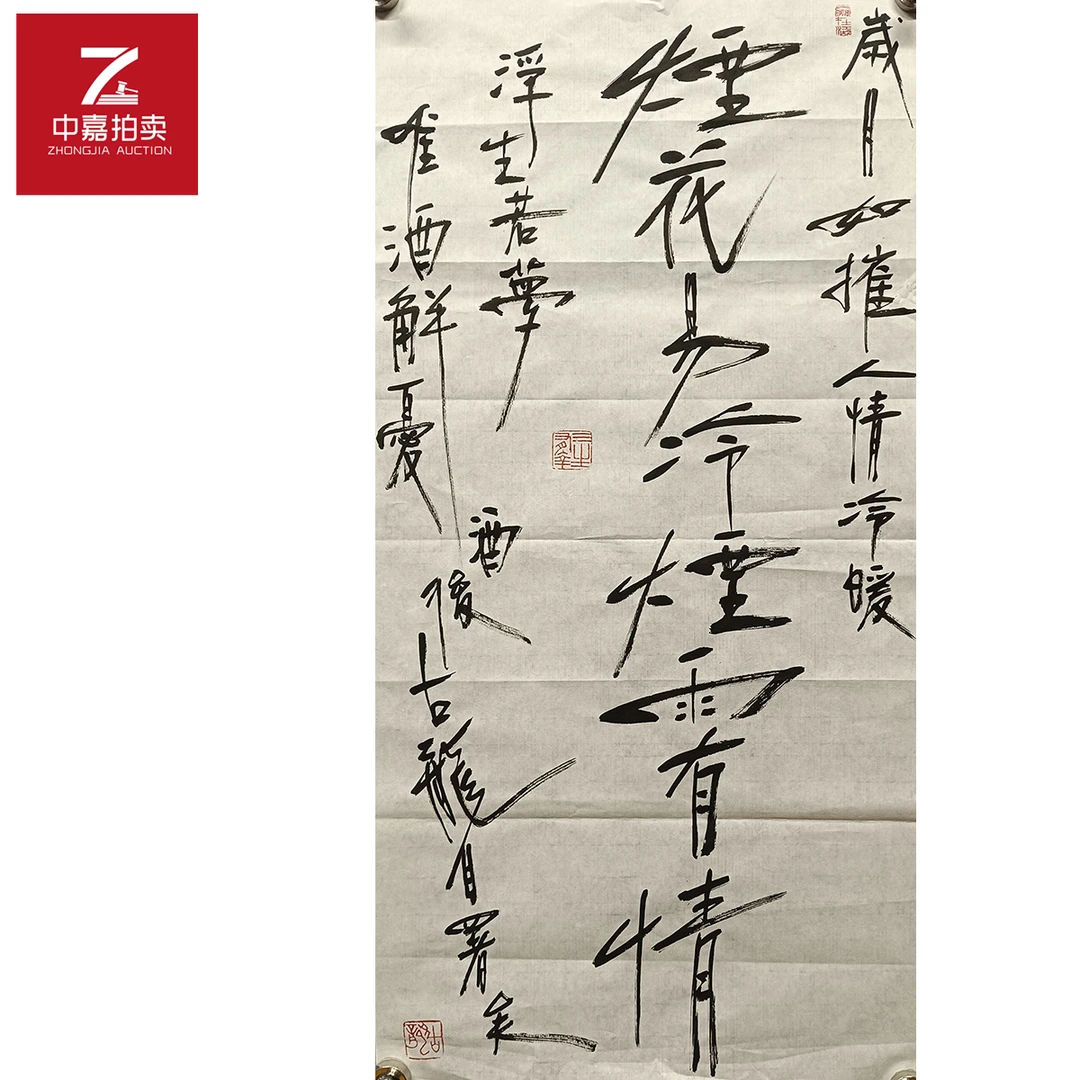 中嘉拍卖
ZHONGJIA AUCTION
歲月如摧人情冷暖
煙花易冷煙雨有情
浮生若夢
唯酒解憂
酒後古龍自署